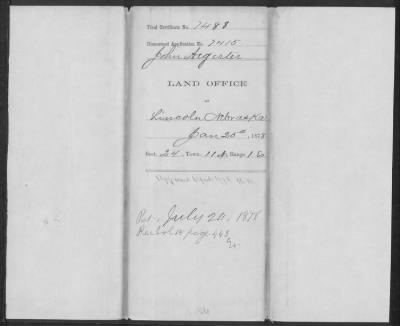 Final Certificate No. 7488
Homestead Application No. 7415
John Aegerter
LAND OFFICE
Lincoln Nebraska
Jan 25th, 1878
Sect. 24, Town. 11 N, Range 1 E.
Pat. July 20, 1878
Rec Vol 15 page 443